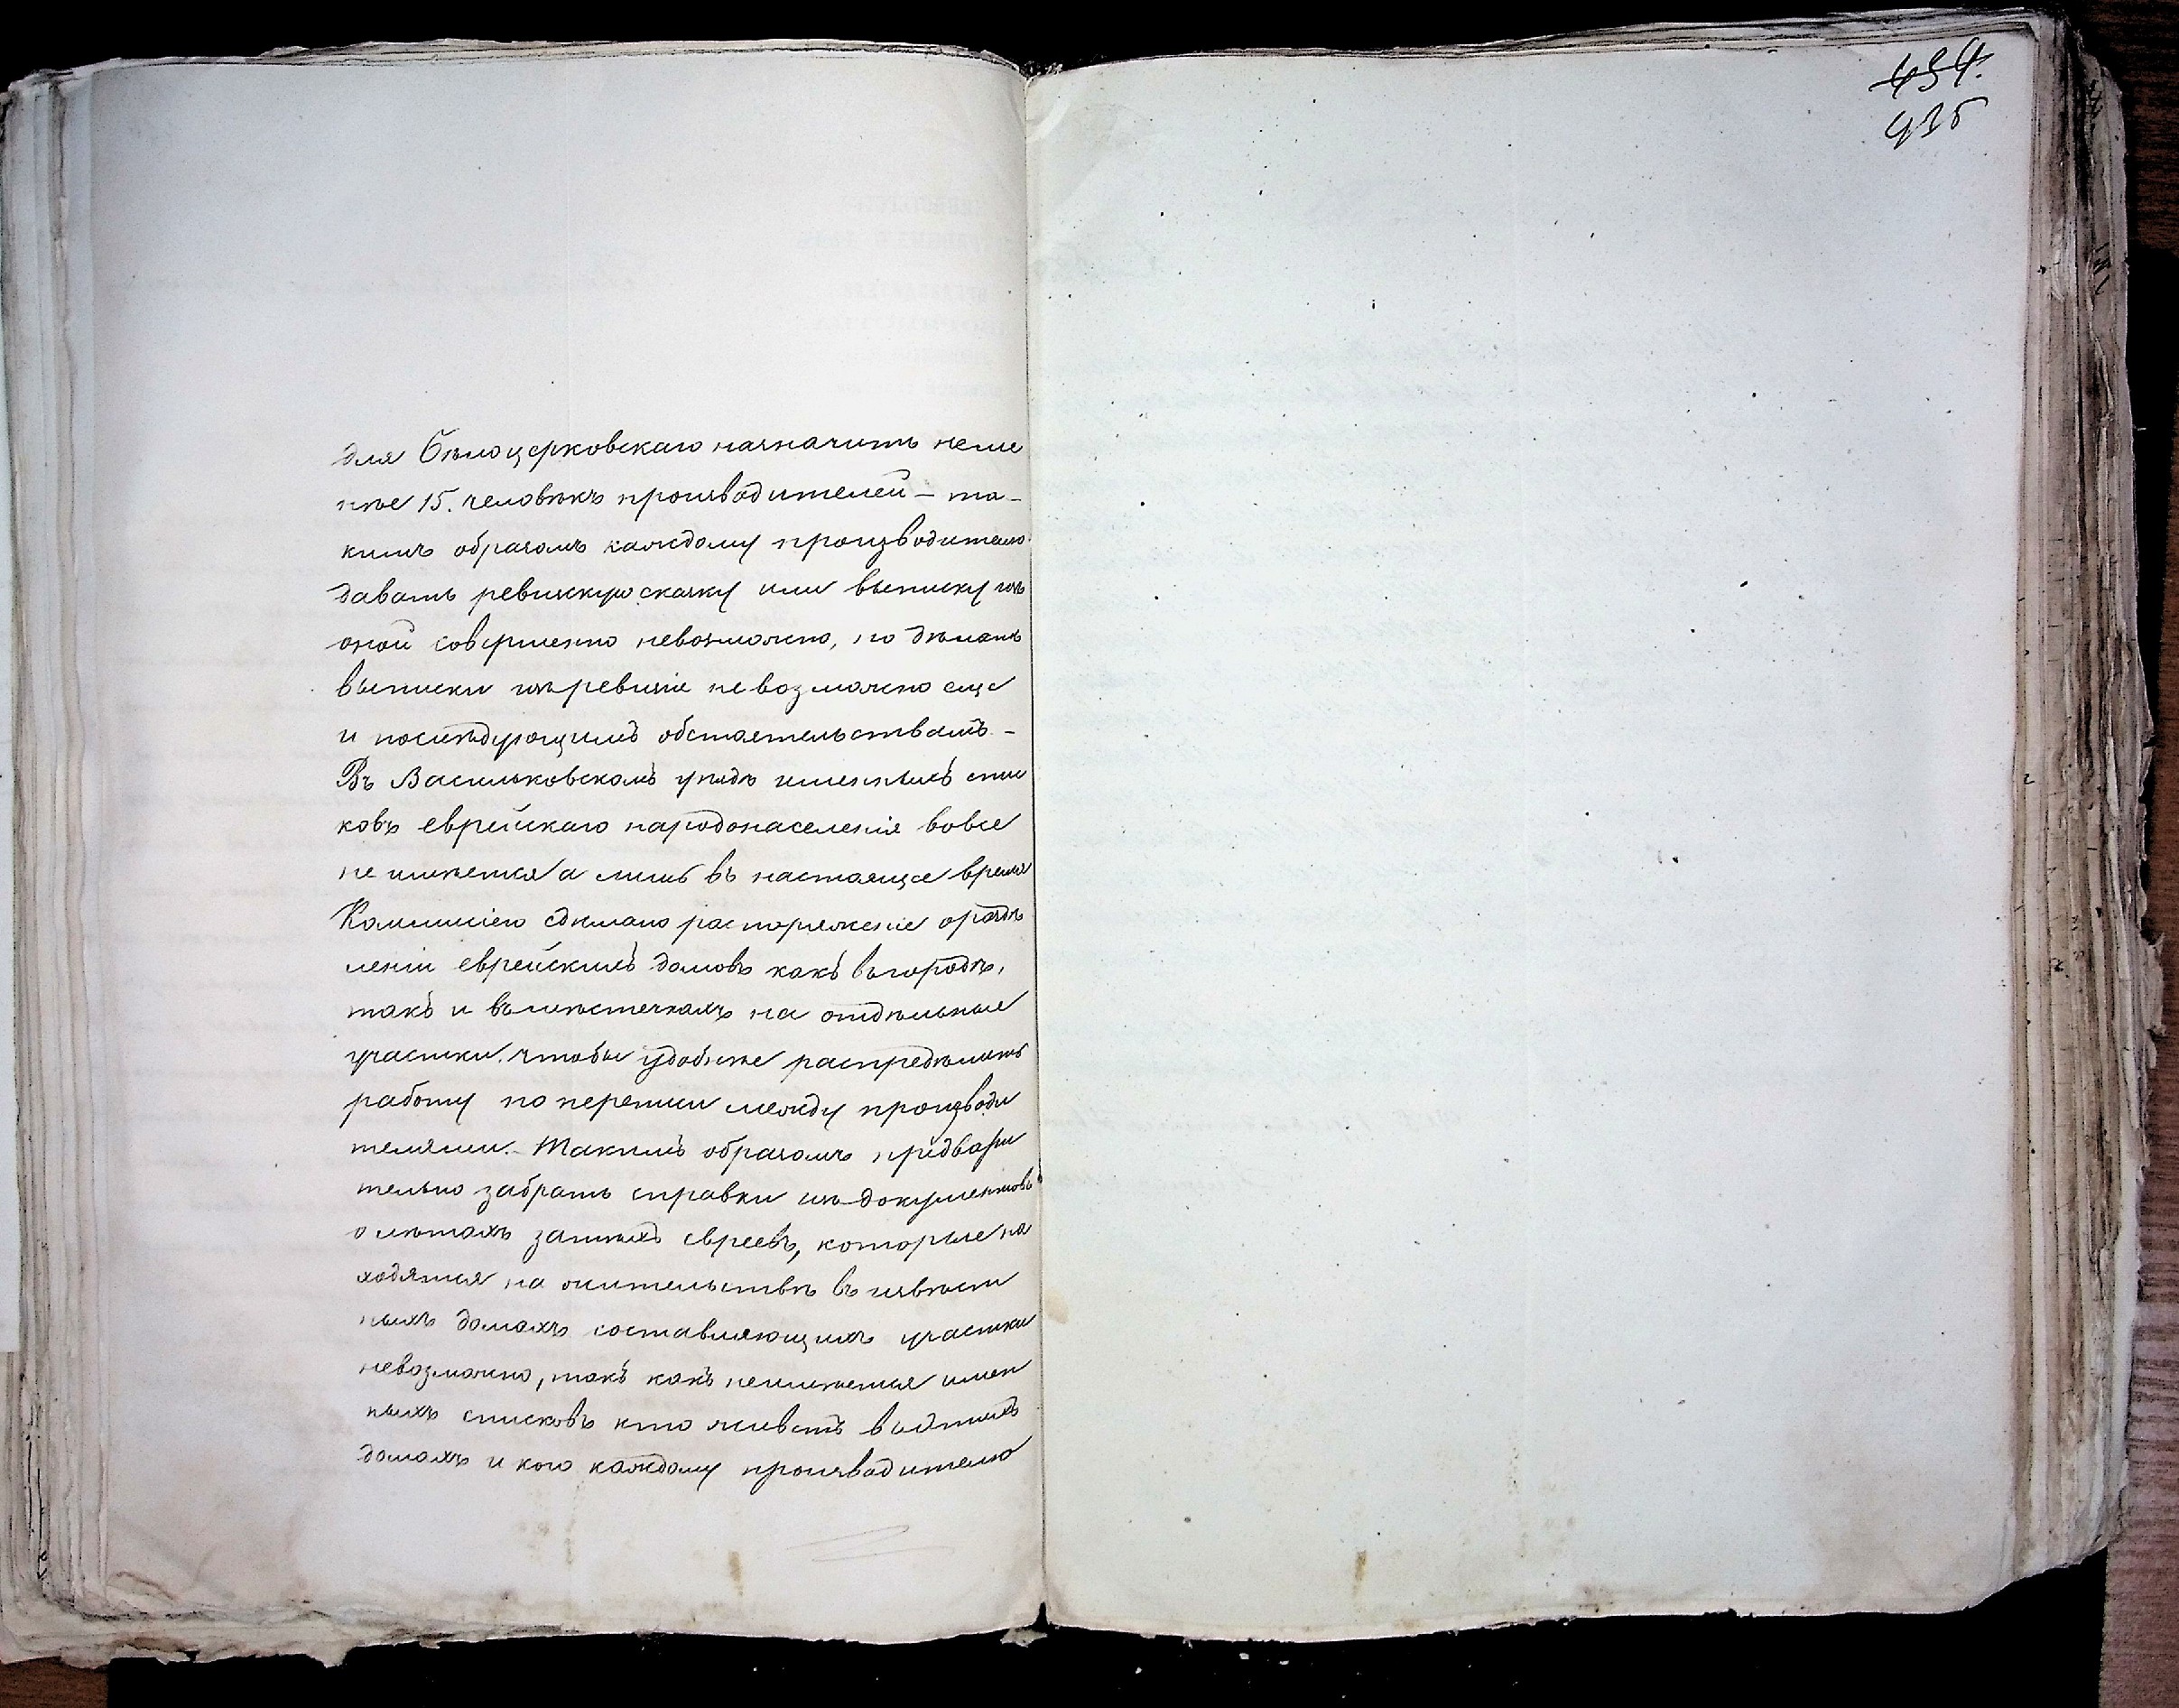 для Бѣлоцерковскаго назначить неме
нѣе 15. человѣкъ производителей – та-
кимъ образомъ каждому производителю
давать ревизскую сказку или выписку изъ
оной совершенно невозможно, но дѣлать
выписки изъ ревизіи невозможно еще
и послѣдующимъ обстоятельствамъ. –
Въ Васильковскомъ уѣздѣ именныхъ спис
ковъ еврейскаго народонаселенія вовсе
не имѣется а лишь въ настоящее время
Коммиссіею сдѣлано распоряженіе о раздѣ
леніи еврейскихъ домовъ какъ въ городѣ,
такъ и въ мѣстечкахъ на отдѣльные
участки. чтобы удобнѣе распредѣлить
работу по переписи между производи
телями. – Такимъ образомъ предвари
тельно забрать справки изъ документовъ
о лѣтахъ за евреевъ, которые на
ходятся на жительствѣ въ извѣст
ныхъ домахъ составляющихъ участки
невозможно, такъ какъ неимѣется имен
ныхъ списковъ кто живетъ въ
домахъ и кого каждому производителю
434.
435